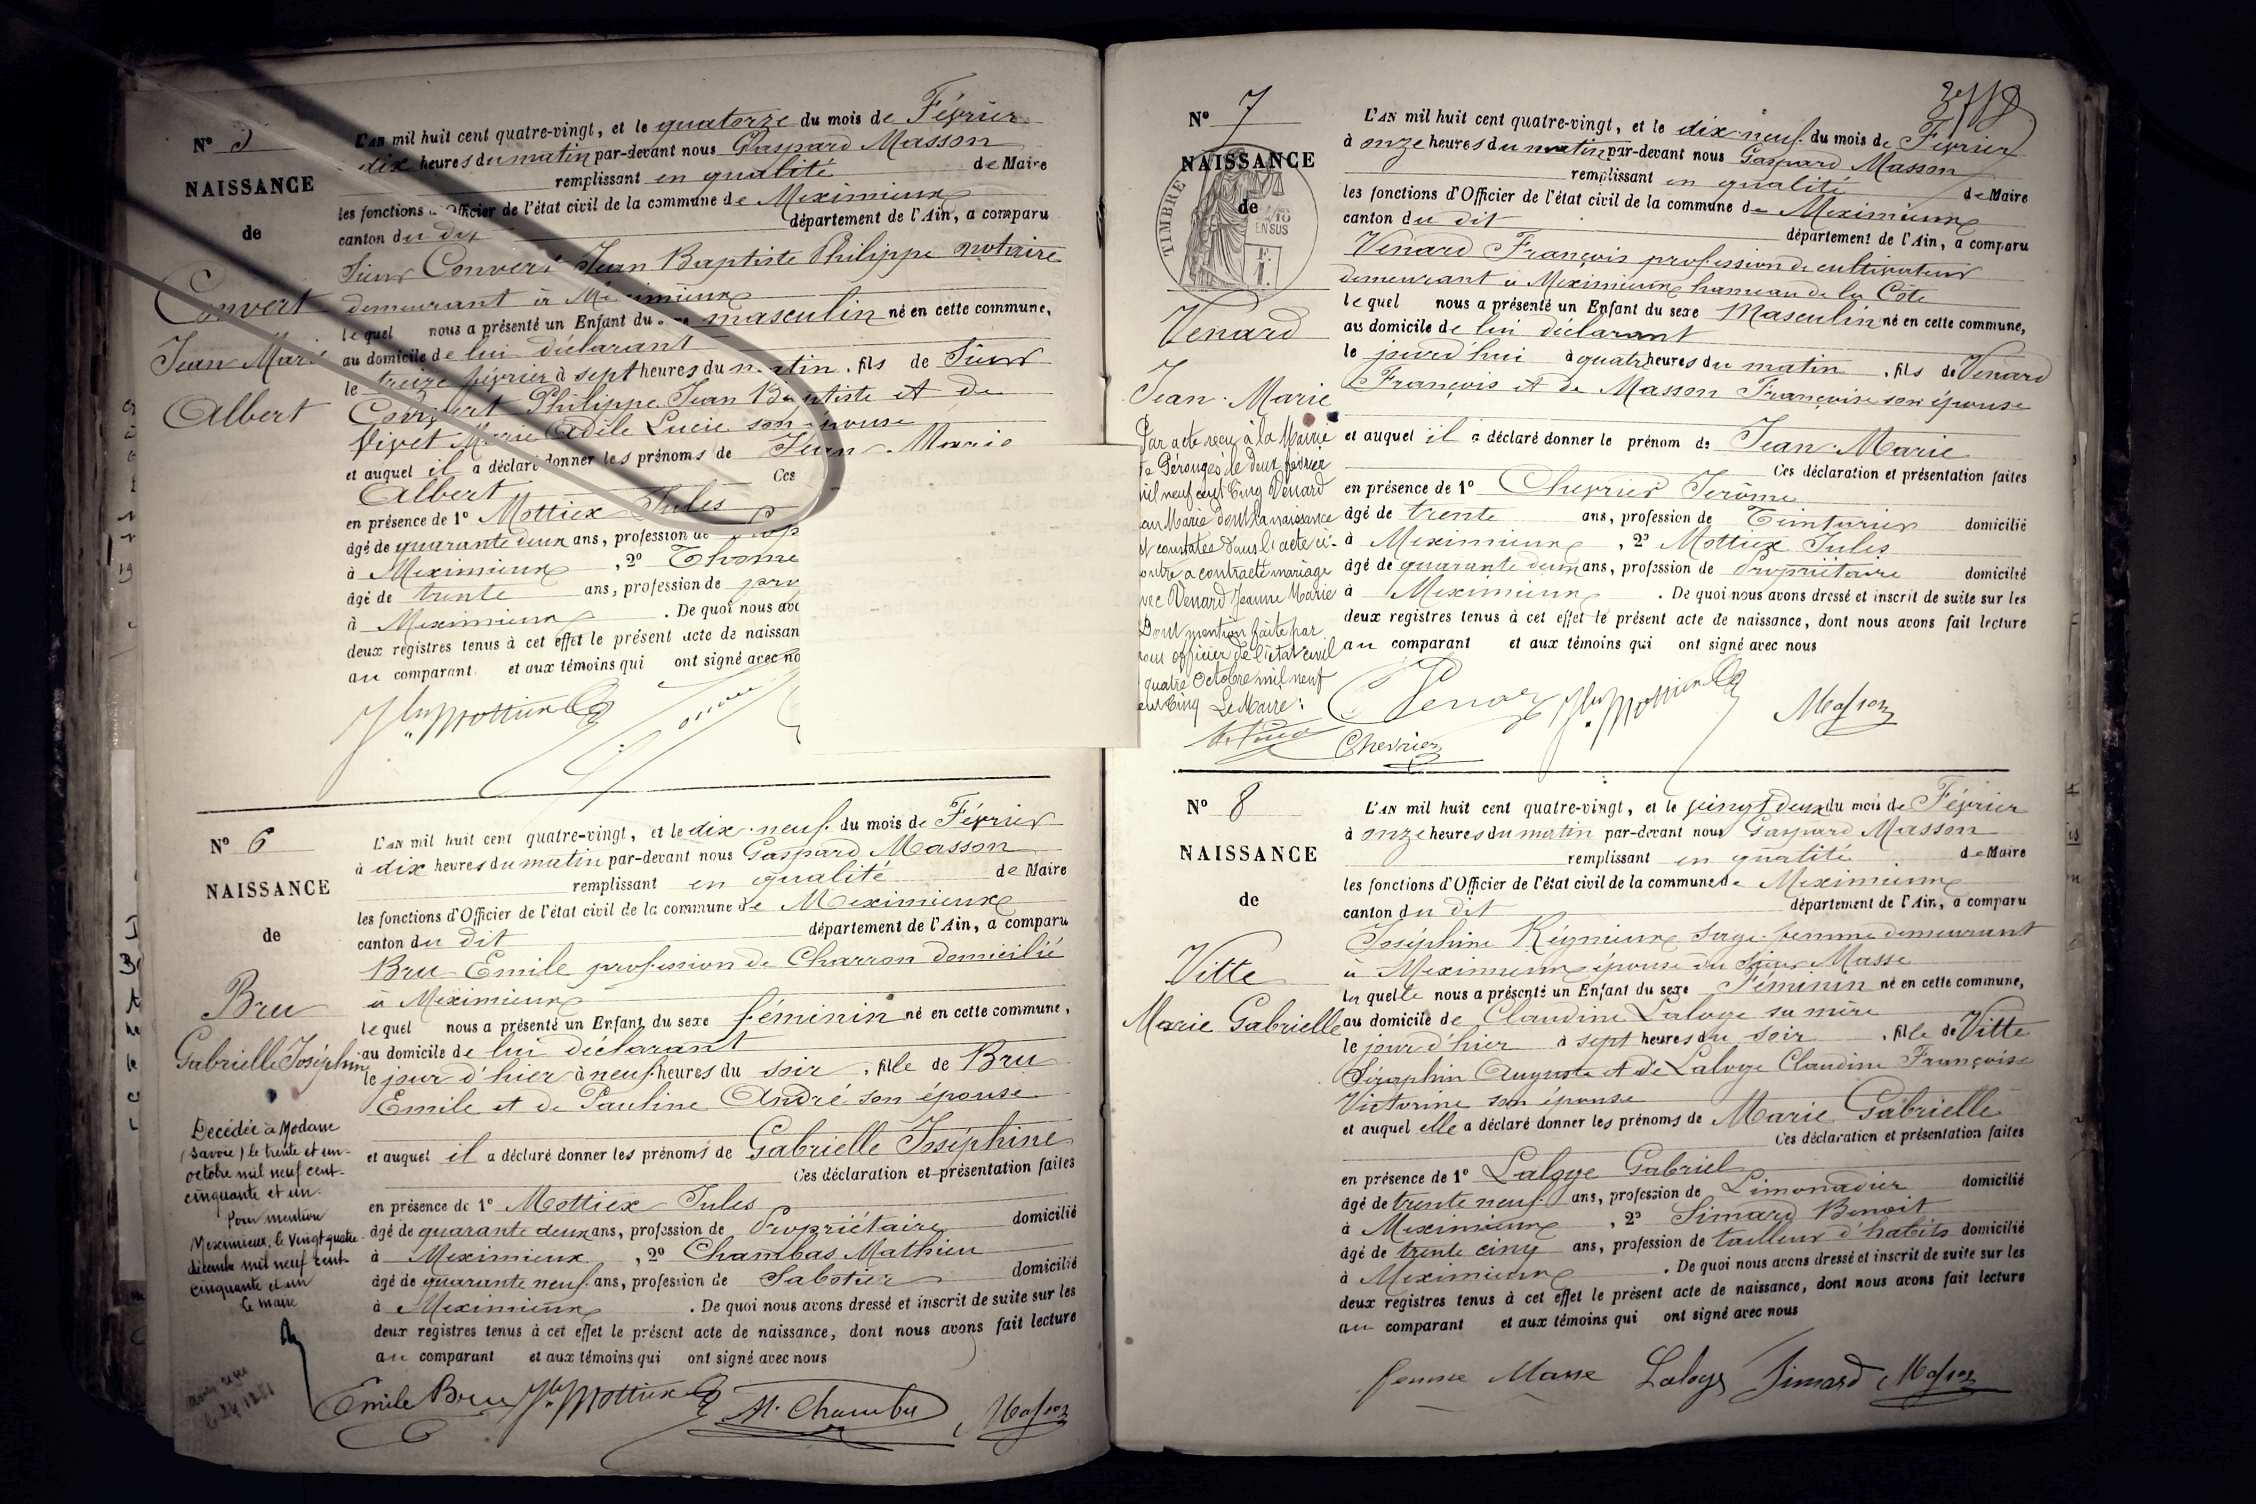 N° 5
NAISSANCE
de
Convert
Jean Marie
Albert
L'AN mil huit cent quatre-vingt, et le quatorze du mois de Février
dix heures du matin par-devant nous Gaspard Masson
remplissant en qualité de Maire
les fonctions d'Officier de l'état civil de la commune de Meximieux
canton du dit département de l'Ain, a comparu
Sieur Convert Jean Baptiste Philippe notaire
demeurant à Meximieux
lequel nous a présenté un Enfant du sexe masculin né en cette commune,
au domicile de lui déclarant
le treize février à sept heures du matin, fils de Sieur
Convert Philippe Jean Baptiste et de
Marie Adèle Lucie son épouse
et auquel il a déclaré donner les prénoms de Jean-Marie
Albert Ces
en présence de 1° Mottiex Jules
âgé de quarante deux ans, profession de
à Meximieux, 2° Thome
âgé de trente ans, profession de pro
à Meximieux. De quoi nous avo
deux registres tenus à cet effet le présent acte de naissan
au comparant et aux témoins qui ont signé avec no
Jles Mottiex
N° 6
NAISSANCE
de
Bru
Gabrielle Joséphin
Decédée à Modane
(Savoie) le trente et un
octobre mil neuf cent
cinquante et un.
Pour mention
Meximieux, le vingt quatre
décembre mil neuf cent
cinquante et un
Le maire
L'AN mil huit cent quatre-vingt, et le dix-neuf du mois de Février
à dix heures du matin par-devant nous Gaspard Masson
remplissant en qualité de Maire
les fonctions d'Officier de l'état civil de la commune de Meximieux
canton du dit département de l'Ain, a comparu
Bru Emile profession de Charron domicilié
à Meximieux
lequel nous a présenté un Enfant du sexe féminin né en cette commune,
au domicile de lui déclarant
le jour d'hier à neuf heures du soir, fille de Bru
Emile et de Pauline André son épouse
et auquel il a déclaré donner les prénoms de Gabrielle Joséphine
Ces déclaration et présentation faites
en présence de 1° Mottiex Jules
âgé de quarante deux ans, profession de Propriétaire domicilié
à Meximieux, 2° Chambas Mathieu
âgé de quarante neuf ans, profession de Sabotier domicilié
à Meximieux. De quoi nous avons dressé et inscrit de suite sur les
deux registres tenus à cet effet le présent acte de naissance, dont nous avons fait lecture
au comparant et aux témoins qui ont signé avec nous
Emile Bru Jles Mottiex M. Chambas Masson
N° 7
NAISSANCE
de
TIMBRE
Venard
Jean-Marie
Par acte reçu à la Mairie
de Pérouges le deux février
mil neuf cent cinq Venard
Jean Marie dont la naissance
est constatée dans l'acte ci-
contre a contracté mariage
avec Venard Jeanne Marie
Dont mention faite par
nous officier de l'état civil
quatre Octobre mil neuf
cent cinq Le Maire:
L'AN mil huit cent quatre-vingt, et le dix neuf du mois de Février
à onze heures du matin par-devant nous Gaspard Masson
remplissant en qualité de Maire
les fonctions d'Officier de l'état civil de la commune de Meximieux
canton du dit département de l'Ain, a comparu
Venard François profession de cultivateur
demeurant à Meximieux hameau de la Côte
lequel nous a présenté un Enfant du sexe Masculin né en cette commune,
au domicile de lui déclarant
le jourd'hui à quatre heures du matin, fils de Venard
François et de Masson Françoise son épouse
et auquel il a déclaré donner le prénom de Jean-Marie
Ces déclaration et présentation faites
en présence de 1° Chevrier Jerôme
âgé de trente ans, profession de Teinturier domicilié
à Meximieux, 2° Mottiex Jules
âgé de quarante deux ans, profession de Propriétaire domicilié
à Meximieux. De quoi nous avons dressé et inscrit de suite sur les
deux registres tenus à cet effet le présent acte de naissance, dont nous avons fait lecture
au comparant et aux témoins qui ont signé avec nous
Venard Jles Mottiex Masson
Chevrier
N° 8
NAISSANCE
de
Vitte
Marie Gabrielle
L'AN mil huit cent quatre-vingt, et le vingt deux du mois de Février
à onze heures du matin par-devant nous Gaspard Masson
remplissant en qualité de Maire
les fonctions d'Officier de l'état civil de la commune de Meximieux
canton du dit département de l'Ain, a comparu
Joséphine Régnieux sage-femme demeurant
à Meximieux épouse du Sieur Masse
laquelle nous a présenté un Enfant du sexe Féminin né en cette commune,
au domicile de Claudine Laloge sa mère
le jour d'hier à sept heures du soir, fille de Vitte
Séraphin Auguste et de Laloge Claudine Françoise
Victorine son épouse
et auquel elle a déclaré donner les prénoms de Marie Gabrielle
Ces déclaration et présentation faites
en présence de 1° Laloge Gabriel
âgé de trente neuf ans, profession de Limonadier domicilié
à Meximieux, 2° Simard Benoit
âgé de trente cinq ans, profession de tailleur d'habits domicilié
à Meximieux. De quoi nous avons dressé et inscrit de suite sur les
deux registres tenus à cet effet le présent acte de naissance, dont nous avons fait lecture
au comparant et aux témoins qui ont signé avec nous
femme Masse Laloge Simard Masson